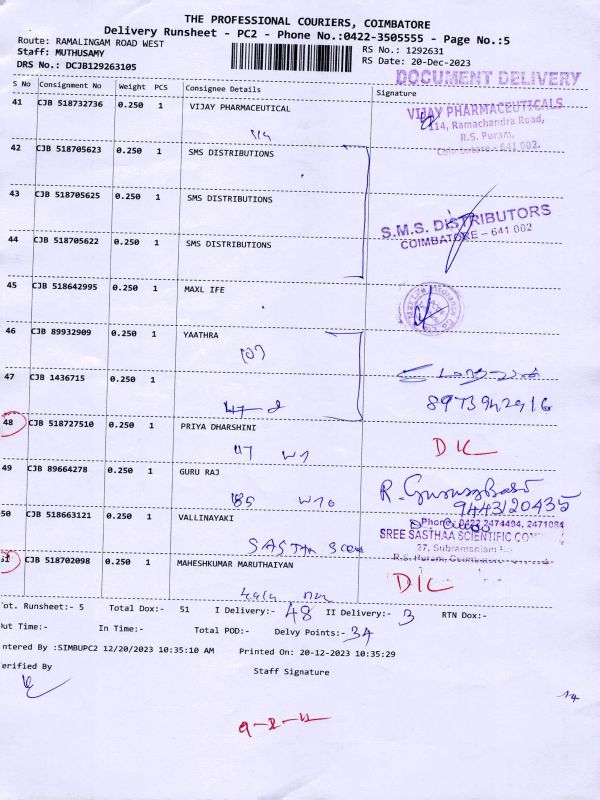 THE PROFESSIONAL COURIERS, COIMBATORE
Delivery Runsheet - PC2 - Phone No.:0422-3505555 - Page No.:5
Route: RAMALINGAM ROAD WEST
RS No.: 1292631
Staff: MUTHUSAMY
RS Date: 20-Dec-2023
DRS No.: DCJB129263105
DOCUMENT DELIVERY
S No Consignment No Weight PCS Consignee Details Signature
41 CJB 518732736 0.250 1 VIJAY PHARMACEUTICAL
VIJAY PHARMACEUTICALS
114, Ramachandra Road,
R.S. Puram,
Coimbatore - 641 002.
42 CJB 518705623 0.250 1 SMS DISTRIBUTIONS
43 CJB 518705625 0.250 1 SMS DISTRIBUTIONS
S.M.S. DISTRIBUTORS
COIMBATORE - 641 002
44 CJB 518705622 0.250 1 SMS DISTRIBUTIONS
45 CJB 518642995 0.250 1 MAXL IFE
46 CJB 89932909 0.250 1 YAATHRA
47 CJB 1436715 0.250 1
8973942916
48 CJB 518727510 0.250 1 PRIYA DHARSHINI
D/C
49 CJB 89664278 0.250 1 GURU RAJ
85
R.
9443120435
50 CJB 518663121 0.250 1 VALLINAYAKI
SASTHA
Phone: 0422 2474494, 2471084
SREE SASTHAA SCIENTIFIC
27, Subramaniam
R.S. Puram, Coimbatore
51 CJB 518702098 0.250 1 MAHESHKUMAR MARUTHAIYAN
D/C
ot. Runsheet:- 5 Total Dox:- 51 I Delivery:- 48 II Delivery:- 3 RTN Dox:-
ut Time:- In Time:- Total POD:- Delvy Points:- 34
ntered By :SIMBUPC2 12/20/2023 10:35:10 AM Printed On: 20-12-2023 10:35:29
erified By
Staff Signature
14